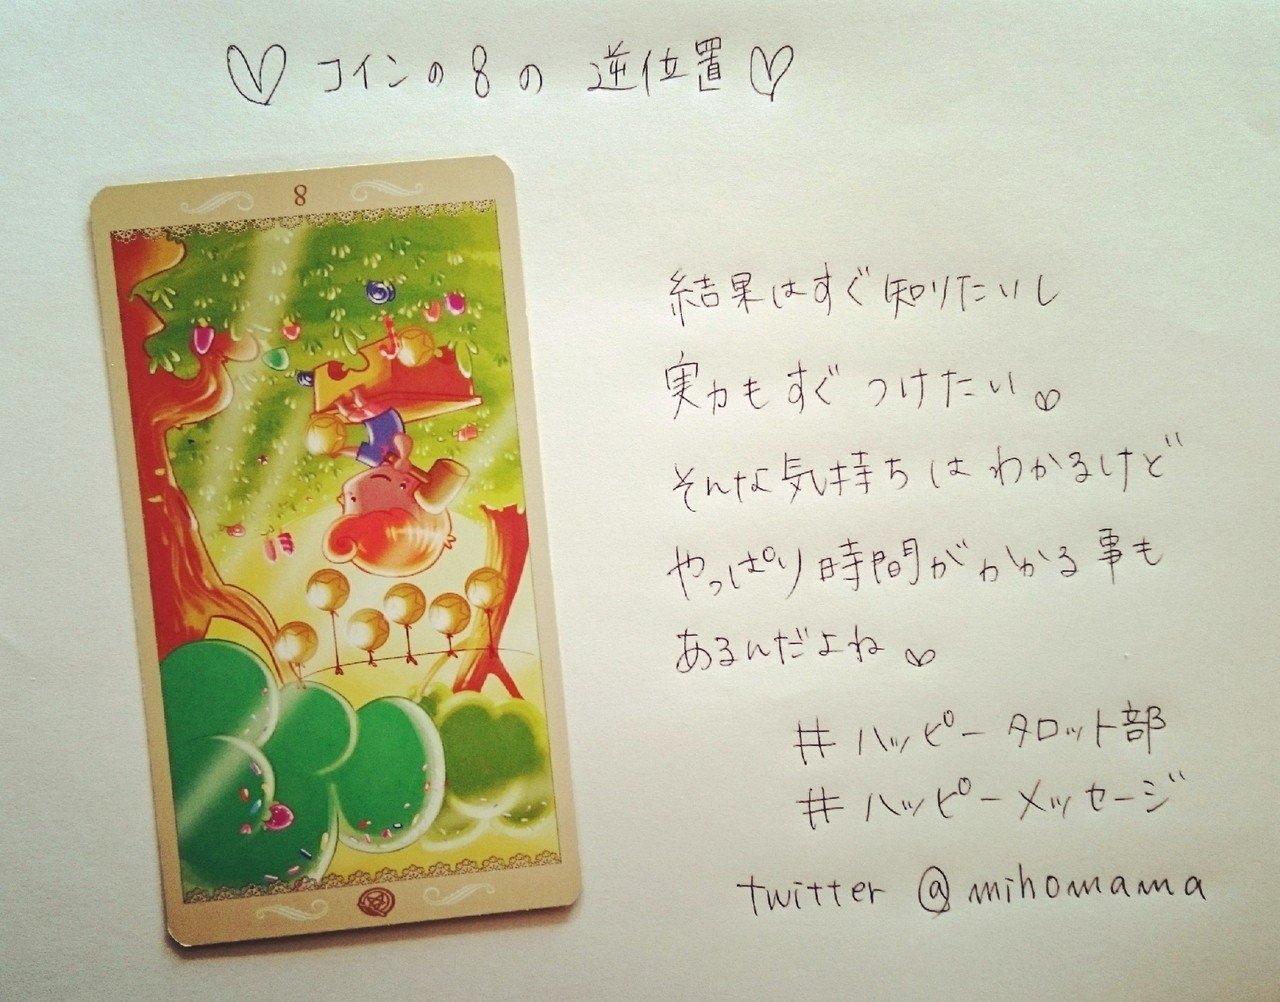 ♡コインの8の逆位置♡
8
結果はすぐ知りたいし
実力もすぐつけたい♡
そんな気持ちはわかるけど
やっぱり時間がかかる事も
あるんだよね♡
#ハッピータロット部
#ハッピーメッセージ
twitter @mihomama